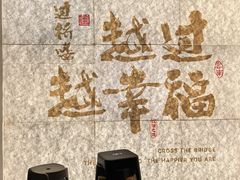 越过
越幸福
CROSS THE BRIDGE
THE THE HAPPIER YOU ARE